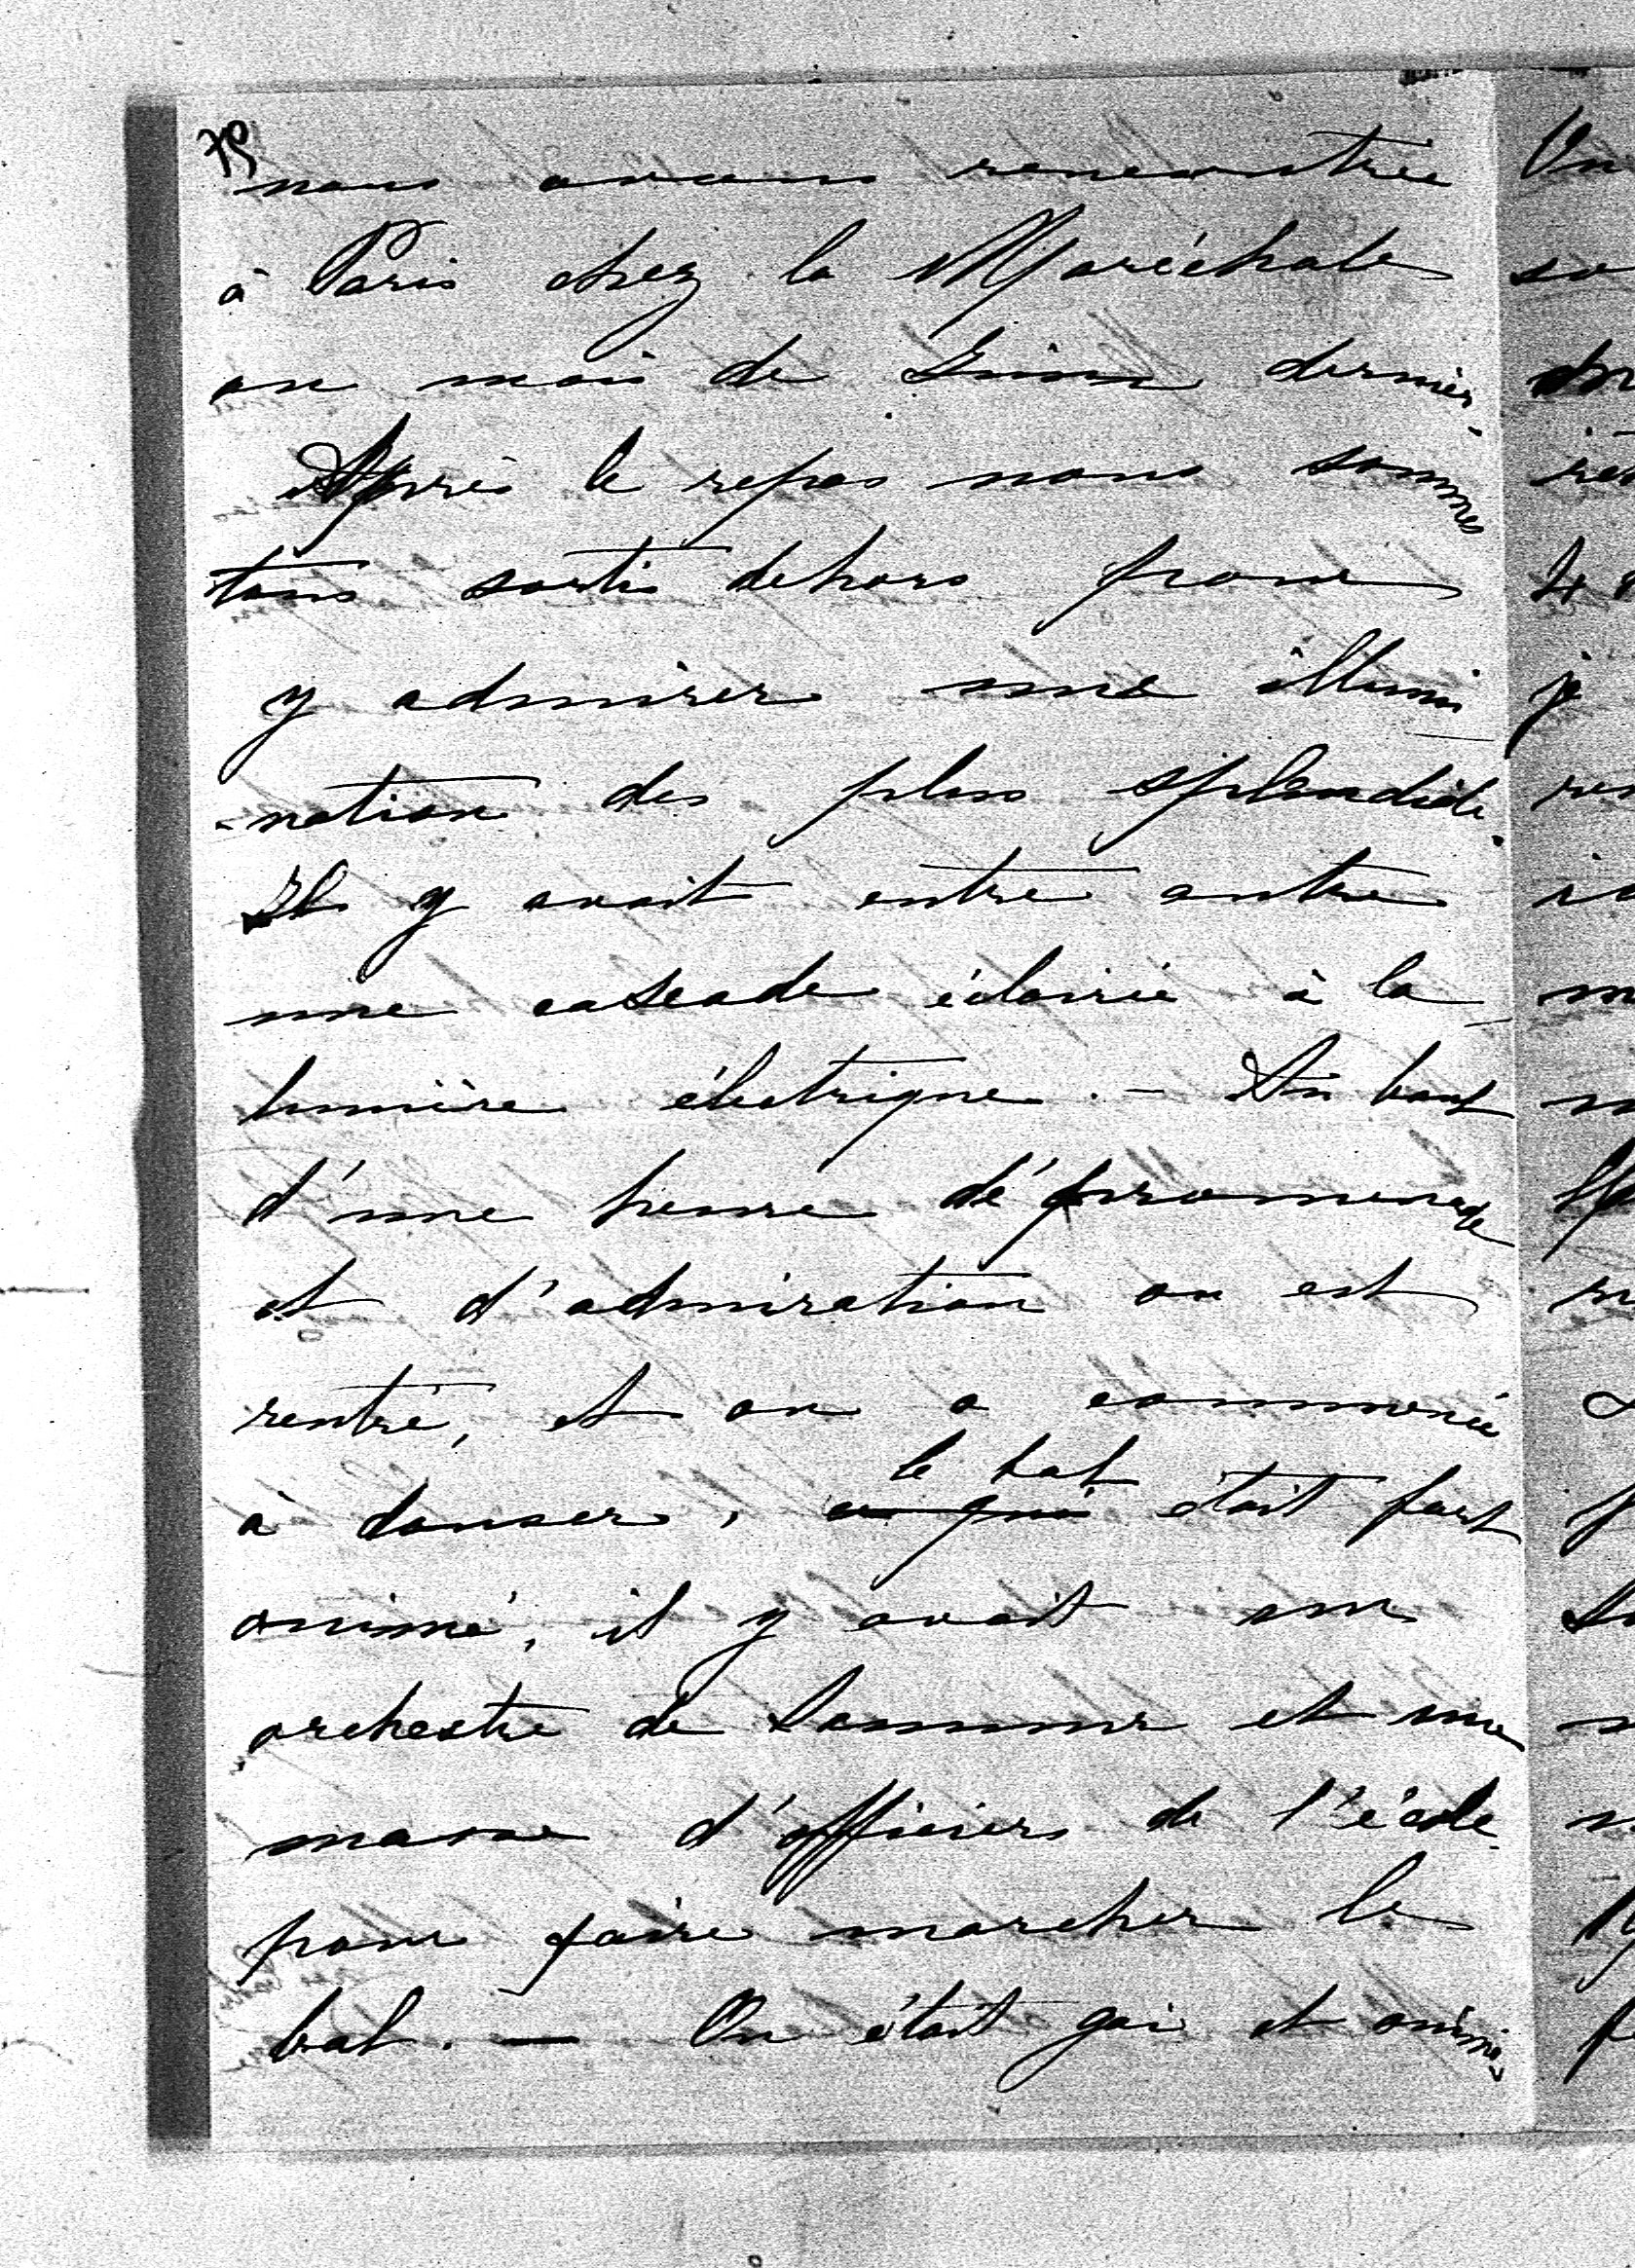 nous avions rencontrée
à Paris chez la Maréchale
au mois de Juin dernier.
Après le repas nous sommes
tous sortis dehors pour
y admirer une illumi
-nation des plus splendide.
Il y avait entre autre
une cascade éclairée à la
lumière électrique. — Au bout
d'une heure de promenade
et d'admiration on est
rentré, et on a commencé
le bal
à danser, ce qui était fort
animé, il y avait un
orchestre de Saumur et une
masse d'officiers de l'école
pour faire marcher le
bal. — On était gai et animé,